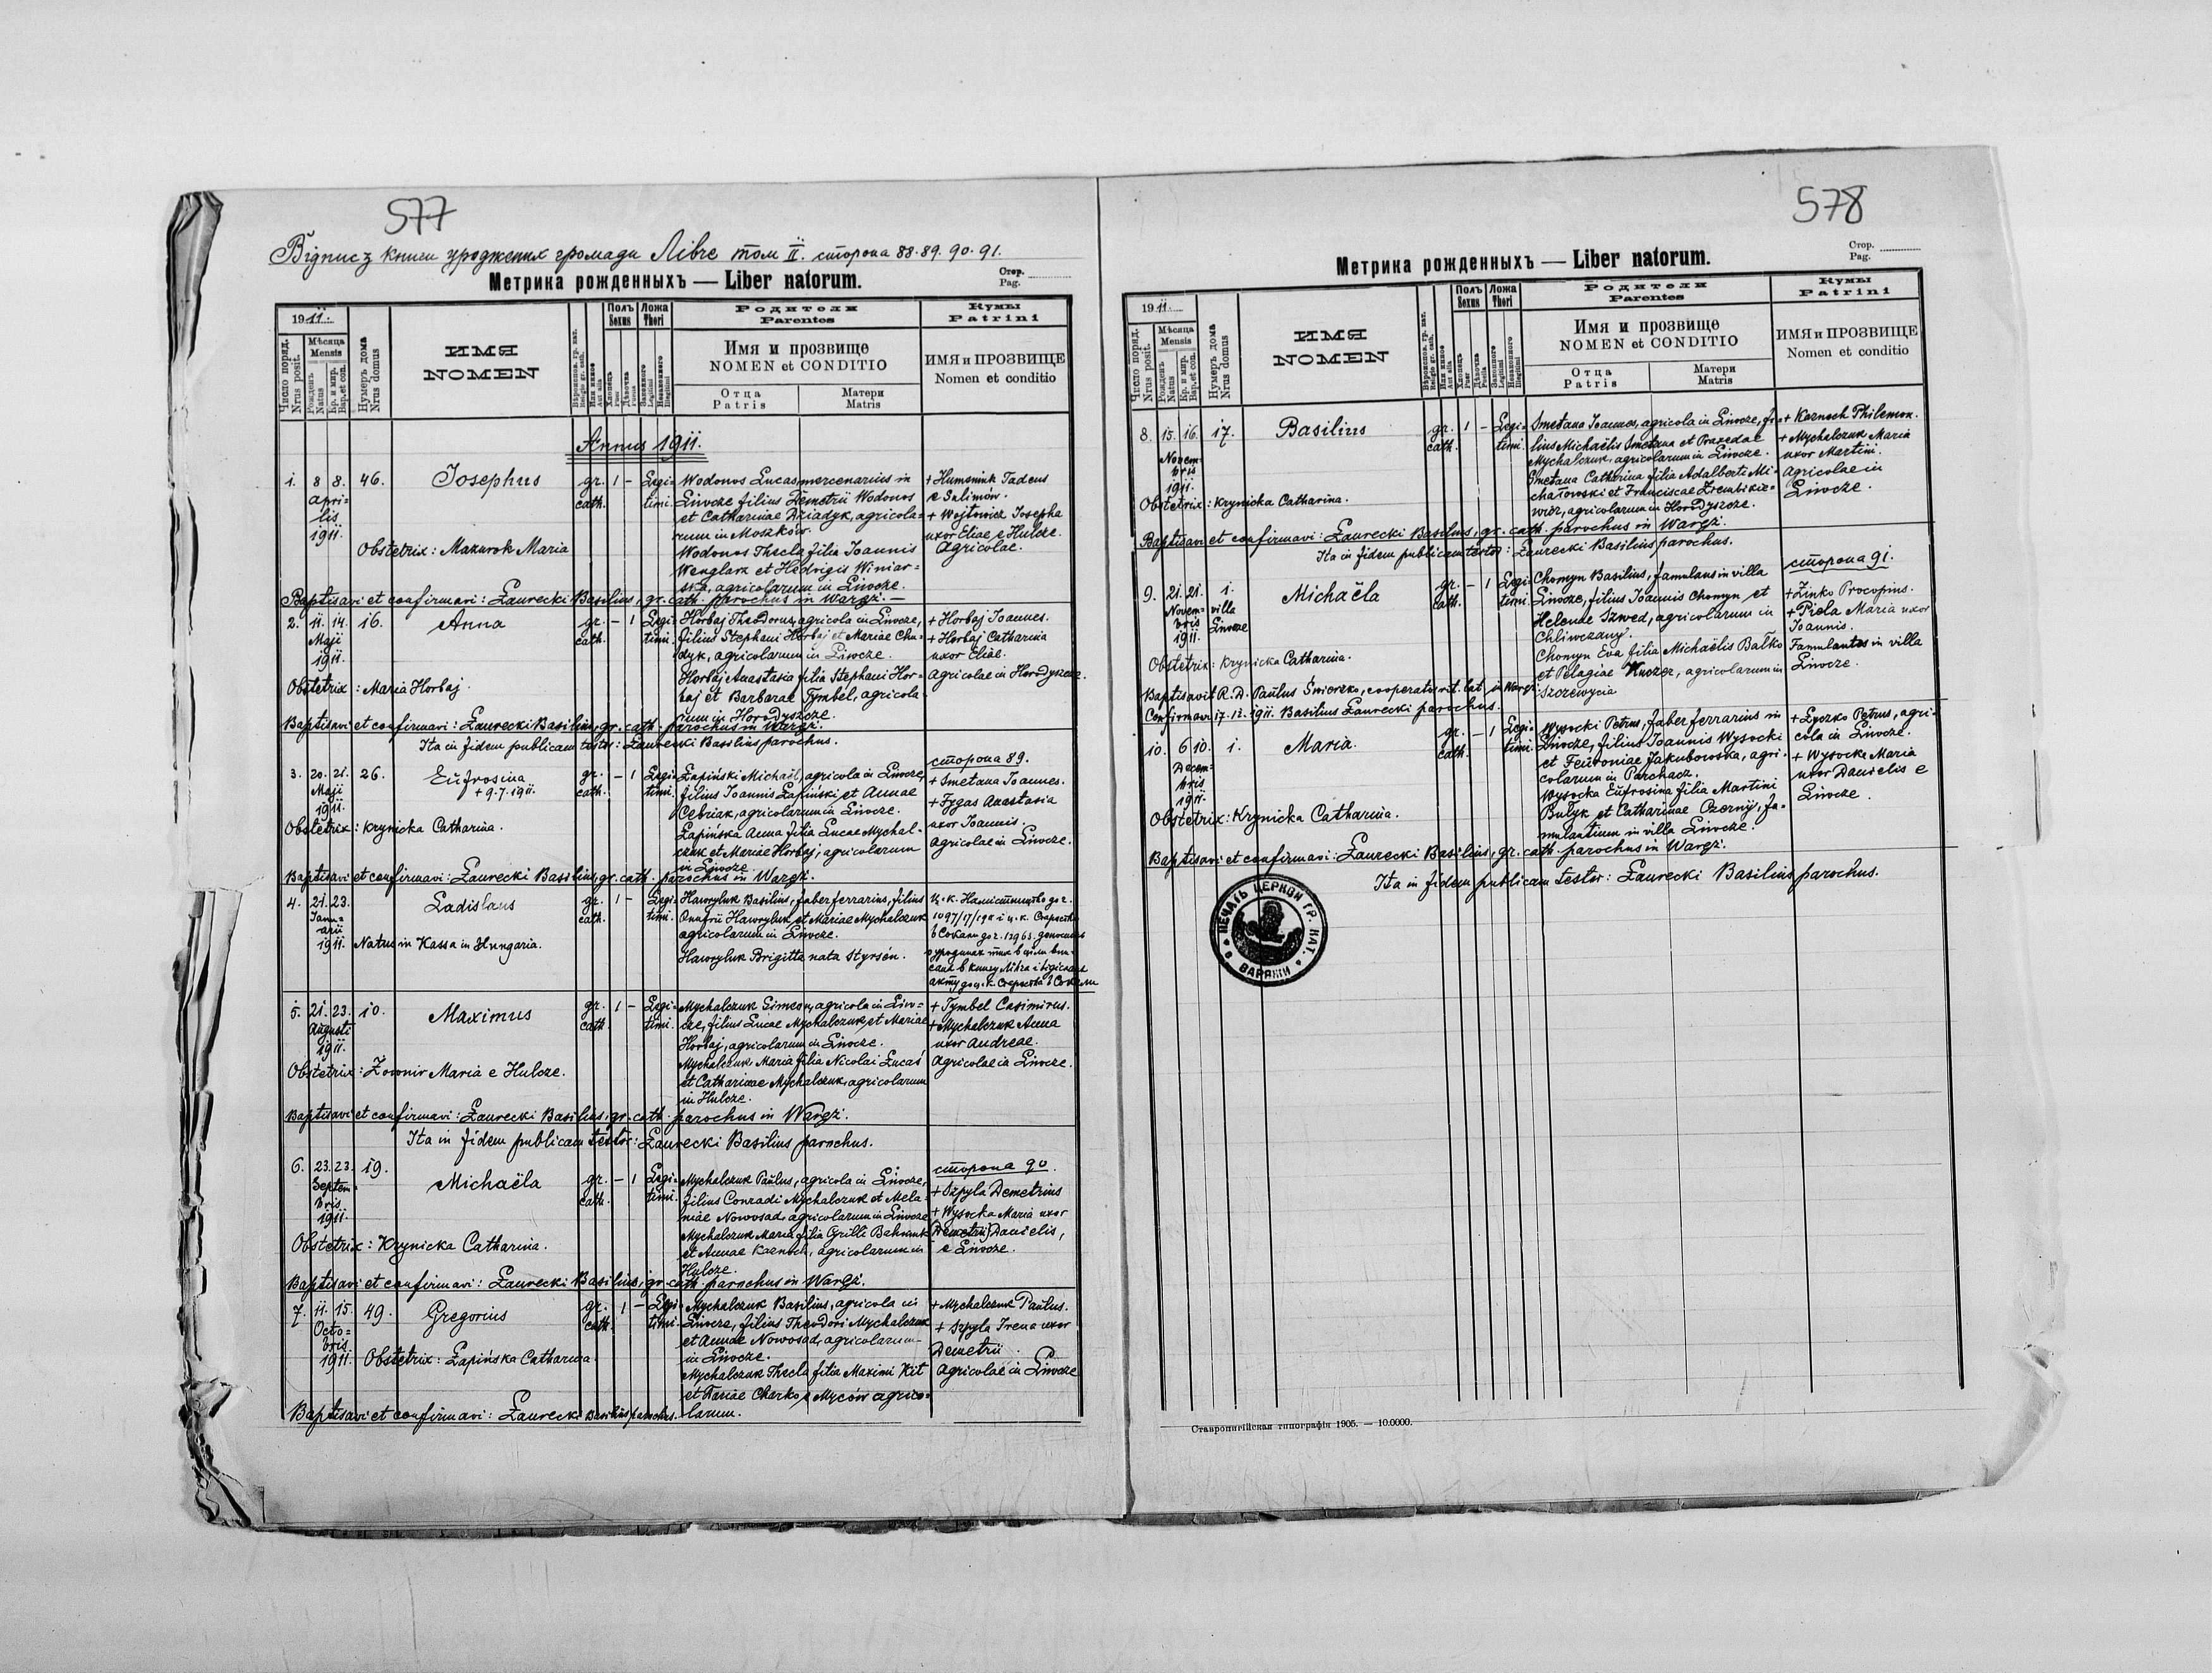 577
Відпис з книги уроджених громади Лівче том ІІ. сторона 88. 89. 90. 91.
Метрика рожденныхъ — Liber natorum.
Стор.
Pag.
1911.
Число поряд.
Nrus posit.
Мѣсяца
Mensis
Рожденъ
Natus
Кр. и мир.
Bap. et con.
Нумеръ дома
Nrus domus
ИМЯ
NOMEN
Вѣроиспов. гр. кат.
Religio gr. cath.
Или иное
Aut alia
Полъ
Sexus
Хлопецъ
Puer
Дѣвочка
Puella
Ложа
Thori
Законного
Legitimi
Незаконного
Illegitimi
Родители
Parentes
Имя и прозвище
NOMEN et CONDITIO
Отца
Patris
Матери
Matris
Кумы
Patrini
ИМЯ и ПРОЗВИЩЕ
Nomen et conditio
Annus 1911.
1. 8 8. 46. Josephus gr. 1 – Legi- Wodonos Lucas mercenarius in + Humeniuk Tadeus
Apri- cath. timi. Liwcze filius Demetrii Wodonos e Salimów.
lis et Catharinae Dziadyk, agricola- + Wojtowicz Josepha
1911. rum in Moszków. uxor Eliae e Hulcze.
Obstetrix: Mazurok Maria Wodonos Thecla filia Joannis Agricolae.
Wenglarz et Hedvigis Winiar-
ska, agricolarum in Liwcze.
Baptisavi et confirmavi: Laurecki Basilius, gr. cath. parochus in Waręż. —
2. 11. 14. 16. Anna gr. – 1 Legi- Horbaj Theodorus, agricola in Liwcze, + Horbaj Joannes.
Maji cath. timi. filius Stephani Horbaj et Mariae Chu- + Horbaj Catharina
1911. dyk, agricolarum in Liwcze. uxor Eliae.
Horbaj Anastasia filia Stephani Hor- Agricolae in Horodyszcze.
Obstetrix: Maria Horbaj. baj et Barbarae Tymbel, agricola
rum in Horodyszcze.
Baptisavi et confirmavi: Laurecki Basilius, gr. cath. parochus in Waręż.
Ita in fidem publicam testor: Laurecki Basilius parochus.
сторона 89.
3. 20. 21. 26. Eufrosina gr. – 1 Legi- Łapiński Michaël, agricola in Liwcze, + Smetana Joannes.
Maji + 9.7.1911. cath. timi. filius Joannis Łapiński et Annae + Fygas Anastasia
1911. Cebriak, agricolarum in Liwcze. uxor Joannis.
Obstetrix: Krynicka Catharina. Łapińska Anna filia Lucae Mychal- Agricolae in Liwcze.
czuk et Mariae Horbaj, agricolarum
in Liwcze.
Baptisavi et confirmavi: Laurecki Basilius, gr. cath. parochus in Waręż.
4. 21. 23. Ladislaus gr. 1 – Legi- Hawryluk Basilius, faber ferrarius, filius Ц. к. Намістництво до ч.
Janu- cath. timi. Onufrii Hawryluk et Mariae Mychalczuk 1097/17/1911 і ц. к. Староство
arii agricolarum in Liwcze. в Сокали до ч. 12963.
1911. Natus in Kassa in Hungaria. Hawryluk Brigitta nata Styrsén.
5. 21. 23. 10. Maximus gr. 1 – Legi- Mychalczuk Simeon, agricola in Liw- + Tymbel Casimirus.
Augusti cath. timi. cze, filius Lucae Mychalczuk et Mariae + Mychalczuk Anna
1911. Horbaj, agricolarum in Liwcze. uxor Andreae.
Mychalczuk Maria filia Nicolai Lucas Agricolae in Liwcze.
Obstetrix: Zownir Maria e Hulcze. et Catharinae Mychalczuk, agricolarum
in Hulcze.
Baptisavi et confirmavi: Laurecki Basilius, gr. cath. parochus in Waręż.
Ita in fidem publicam testor: Laurecki Basilius parochus.
сторона 90.
6. 23. 23. 19. Michaëla gr. – 1 Legi- Mychalczuk Paulus, agricola in Liwcze, + Szpyla Demetrius
Septem- cath. timi. filius Conradi Mychalczuk et Mela- + Wysocka Maria uxor
bris niae Nowosad, agricolarum in Liwcze (Demetrii) Danielis,
1911. Mychalczuk Maria filia Cyrilli Bahniuk e Liwcze.
Obstetrix: Krynicka Catharina. et Annae Kaznoch, agricolarum in
Hulcze.
Baptisavi et confirmavi: Laurecki Basilius, gr. cath. parochus in Waręż.
7. 11. 15. 49. Gregorius gr. 1 – Legi- Mychalczuk Basilius, agricola in + Mychalczuk Paulus.
Octo- cath. timi. Liwcze, filius Theodori Mychalczuk + Szpyla Irena uxor
bris et Annae Nowosad, agricolarum Demetrii
1911. Obstetrix: Łapińska Catharina in Liwcze. Agricolae in Liwcze
Mychalczuk Thecla filia Maximi Kit
et Mariae Charko e Myców agrico-
larum.
Baptisavi et confirmavi: Laurecki Basilius parochus.
578
Метрика рожденныхъ — Liber natorum.
Стор.
Pag.
1911.
Число поряд.
Nrus posit.
Мѣсяца
Mensis
Рожденъ
Natus
Кр. и мир.
Bap. et con.
Нумеръ дома
Nrus domus
ИМЯ
NOMEN
Вѣроиспов. гр. кат.
Religio gr. cath.
Или иное
Aut alia
Полъ
Sexus
Хлопецъ
Puer
Дѣвочка
Puella
Ложа
Thori
Законного
Legitimi
Незаконного
Illegitimi
Родители
Parentes
Имя и прозвище
NOMEN et CONDITIO
Отца
Patris
Матери
Matris
Кумы
Patrini
ИМЯ и ПРОЗВИЩЕ
Nomen et conditio
8. 15. 16. 17. Basilius gr. 1 – Legi- Smetana Joannes, agricola in Liwcze, fi- + Kaznoch Philemon.
Novem- cath. timi. lius Michaëlis Smetana et Praxedae + Mychalczuk Maria
bris Mychalczuk, agricolarum in Liwcze. uxor Martini.
1911. Smetana Catharina filia Adalberti Mi- Agricolae in
Obstetrix: Krynicka Catharina. chałowski et Franciscae Trembikie- Liwcze.
wicz, agricolarum in Horodyszcze.
Baptisavi et confirmavi: Laurecki Basilius, gr. cath. parochus in Waręż.
Ita in fidem publicam testor: Laurecki Basilius parochus.
сторона 91.
9. 21. 21. 1. Michaëla gr. – 1 Legi- Chomyn Basilius, famulans in villa + Zinko Procopius.
Novem- villa cath. timi. Liwcze, filius Joannis Chomyn et + Piela Maria uxor
bris Liwcze Helenae Szwed, agricolarum in Joannis.
1911. Chliwczany. Famulantes in villa
Obstetrix: Krynicka Catharina. Chomyn Eva filia Michaëlis Balko Liwcze.
et Pelagiae Kuczer, agricolarum in
Szczewycia
Baptisavit R. D. Paulus Śnieżko, cooperator rit. lat. in Waręż.
Confirmavi 17. 12. 1911. Basilius Laurecki parochus.
10. 6 10. 1. Maria. gr. – 1 Legi- Wysocki Petrus, faber ferrarius in + Łyczko Petrus, agri-
Decem- cath. timi. Liwcze, filius Joannis Wysocki cola in Liwcze.
bris et Feuroniae Jakubowska, agri- + Wysocka Maria
1911. colarum in Parchacz. uxor Danielis e
Wysocka Eufrosina filia Martini Liwcze.
Obstetrix: Krynicka Catharina. Bułyk et Catharinae Czornij, fa-
mulantium in villa Liwcze.
Baptisavi et confirmavi: Laurecki Basilius, gr. cath. parochus in Waręż.
Ita in fidem publicam testor: Laurecki Basilius parochus.
ПЕЧАТЬ ЦЕРКВИ ГР. КАТ. В ВАРЯЖИ
Ставропигійская типографія 1905. — 10.0000.